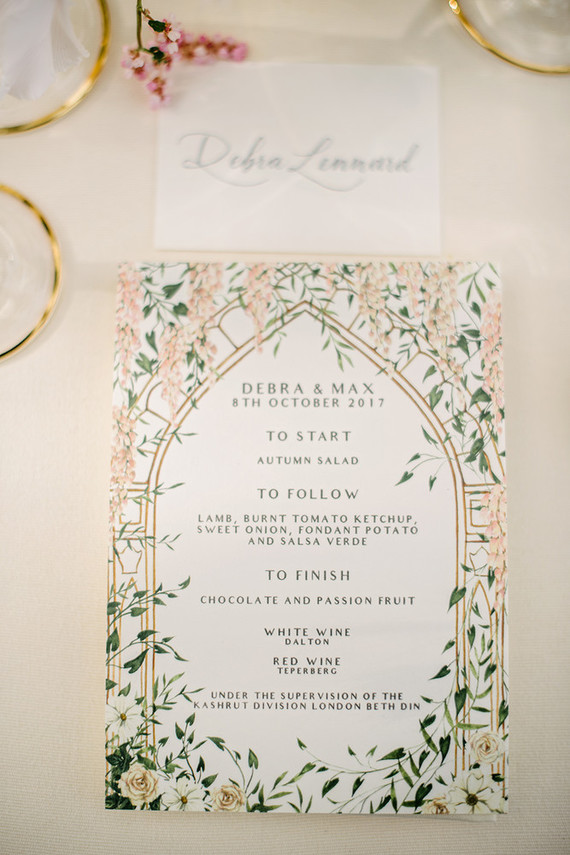 Debra Lennard
DEBRA & MAX
8TH OCTOBER 2017
TO START
AUTUMN SALAD
TO FOLLOW
LAMB, BURNT TOMATO KETCHUP,
SWEET ONION, FONDANT POTATO
AND SALSA VERDE
TO FINISH
CHOCOLATE AND PASSION FRUIT
WHITE WINE
DALTON
RED WINE
TEPERBERG
UNDER THE SUPERVISION OF THE
KASHRUT DIVISION LONDON BETH DIN